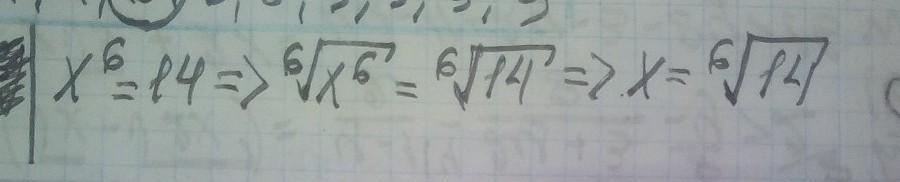 x⁶ = 14 => ⁶√x⁶ = ⁶√14 => x = ⁶√14